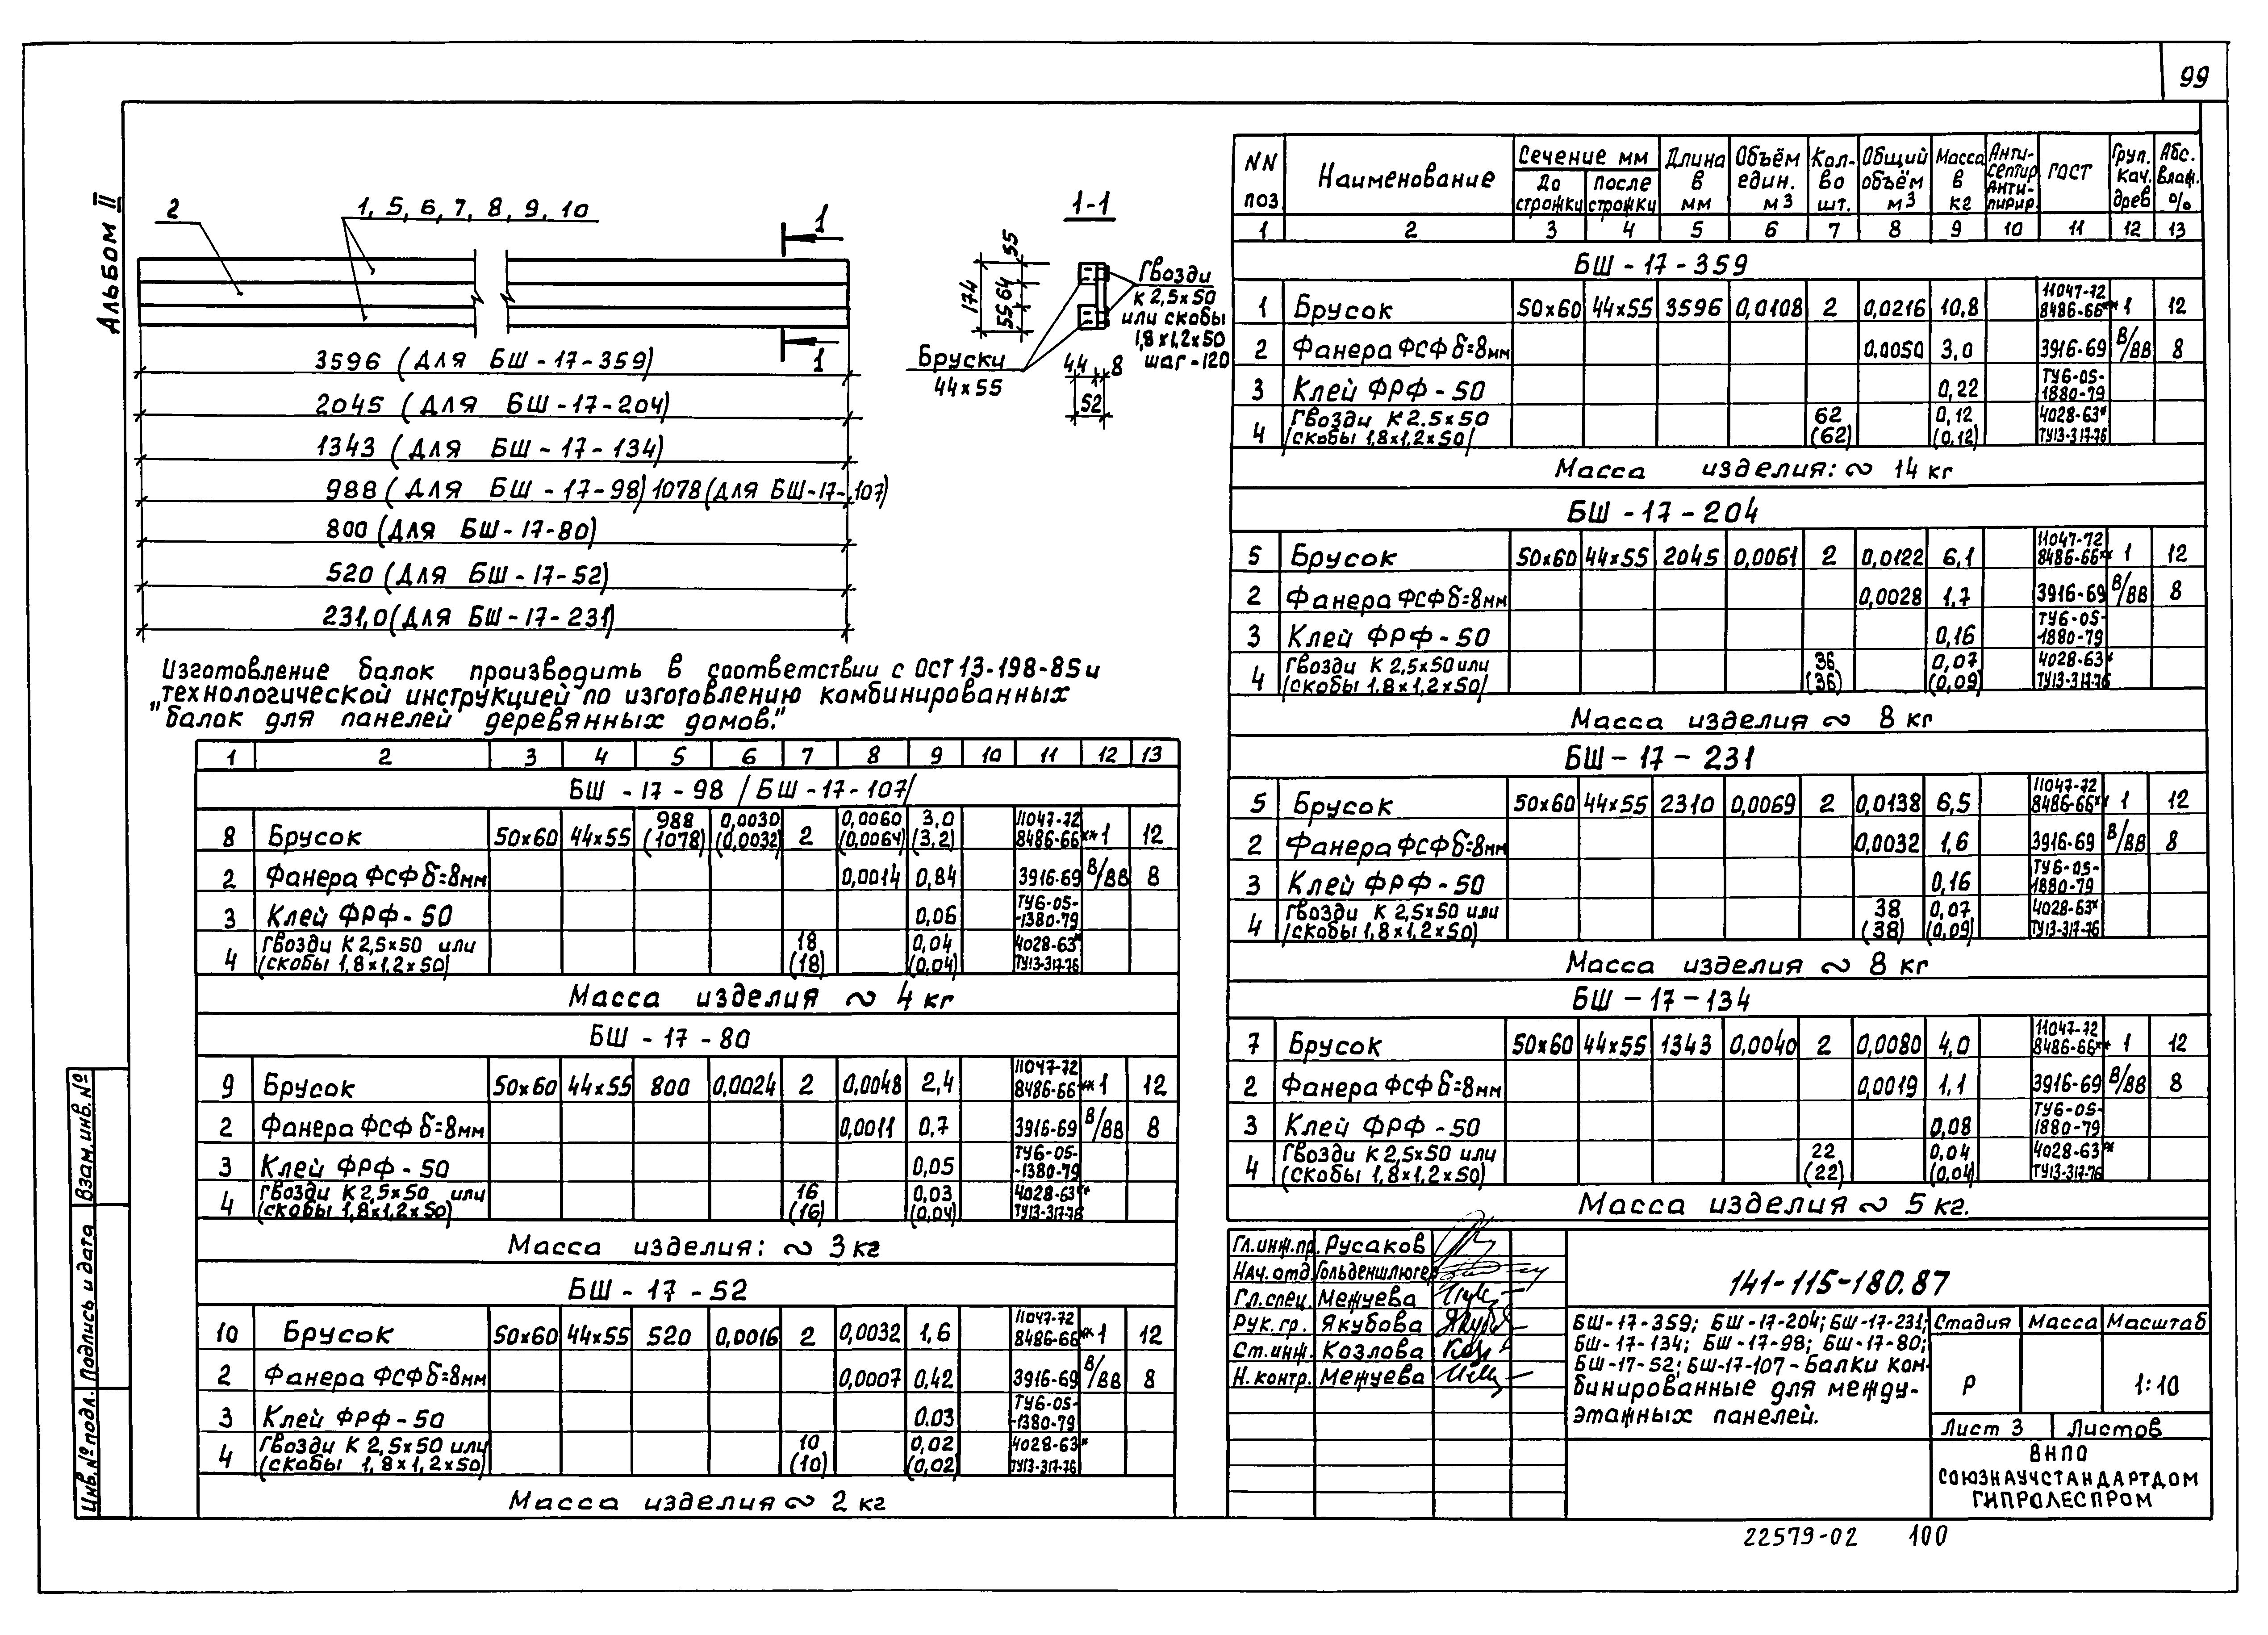 99
Альбом II
2
1, 5, 6, 7, 8, 9, 10
1
1
1-1
3596 (Для БШ-17-359)
2045 (Для БШ-17-204)
1343 (Для БШ-17-134)
988 (Для БШ-17-98) 1078 (Для БШ-17-107)
800 (Для БШ-17-80)
520 (Для БШ-17-52)
231,0 (Для БШ-17-231)
174
55
64
55
Гвозди
К 2,5х50
или скобы
1,8х1,2х50
шаг-120
Бруски
44х55
44
8
52
Изготовление балок производить в соответствии с ОСТ 13-198-85 и
"технологической инструкцией по изготовлению комбинированных
балок для панелей деревянных домов."
1 2 3 4 5 6 7 8 9 10 11 12 13
БШ-17-98 /БШ-17-107/
8 Брусок 50х60 44х55 988 (1078) 0,0030 (0,0032) 2 0,0060 (0,0064) 3,0 (3,2) 11047-72 8486-66** 1 12
2 Фанера ФСФ δ=8мм 0,0014 0,84 3916-69 В/ВВ 8
3 Клей ФРФ-50 0,06 ТУ6-05-1380-79
4 Гвозди К 2,5х50 или (скобы 1,8х1,2х50) 18 (18) 0,04 (0,04) 4028-63* ТУ13-317-76
Масса изделия ~ 4 кг
БШ-17-80
9 Брусок 50х60 44х55 800 0,0024 2 0,0048 2,4 11047-72 8486-66** 1 12
2 Фанера ФСФ δ=8мм 0,0011 0,7 3916-69 В/ВВ 8
3 Клей ФРФ-50 0,05 ТУ6-05-1380-79
4 Гвозди К 2,5х50 или (скобы 1,8х1,2х50) 16 (16) 0,03 (0,04) 4028-63* ТУ13-317-76
Масса изделия: ~ 3 кг
БШ-17-52
10 Брусок 50х60 44х55 520 0,0016 2 0,0032 1,6 11047-72 8486-66** 1 12
2 Фанера ФСФ δ=8мм 0,0007 0,42 3916-69 В/ВВ 8
3 Клей ФРФ-50 0.03 ТУ6-05-1380-79
4 Гвозди К 2,5х50 или (скобы 1,8х1,2х50) 10 (10) 0,02 (0,02) 4028-63* ТУ13-317-76
Масса изделия ~ 2 кг
NN поз. Наименование Сечение мм До строжки после строжки Длина в мм Объём един. м3 Кол-во шт. Общий объём м3 Масса в кг Анти-септир Анти-пирир. ГОСТ Груп. кач. древ Абс. влаж. %
1 2 3 4 5 6 7 8 9 10 11 12 13
БШ-17-359
1 Брусок 50х60 44х55 3596 0,0108 2 0,0216 10,8 11047-72 8486-66** 1 12
2 Фанера ФСФ δ=8мм 0,0050 3,0 3916-69 В/ВВ 8
3 Клей ФРФ-50 0,22 ТУ6-05-1880-79
4 Гвозди К 2.5х50 /скобы 1,8х1,2х50/ 62 (62) 0,12 (0,12) 4028-63* ТУ13-317-76
Масса изделия: ~ 14 кг
БШ-17-204
5 Брусок 50х60 44х55 2045 0,0061 2 0,0122 6,1 11047-72 8486-66** 1 12
2 Фанера ФСФ δ=8мм 0,0028 1,7 3916-69 В/ВВ 8
3 Клей ФРФ-50 0,16 ТУ6-05-1880-79
4 Гвозди К 2,5х50 или /скобы 1,8х1,2х50/ 36 (36) 0,07 (0,09) 4028-63* ТУ13-317-76
Масса изделия ~ 8 кг
БШ-17-231
5 Брусок 50х60 44х55 2310 0,0069 2 0,0138 6,5 11047-72 8486-66** 1 12
2 Фанера ФСФ δ=8мм 0,0032 1,6 3916-69 В/ВВ 8
3 Клей ФРФ-50 0,16 ТУ6-05-1880-79
4 Гвозди К 2,5х50 или /скобы 1,8х1,2х50) 38 (38) 0,07 (0,09) 4028-63* ТУ13-317-76
Масса изделия ~ 8 кг
БШ-17-134
7 Брусок 50х60 44х55 1343 0,0040 2 0,0080 4,0 11047-72 8486-66** 1 12
2 Фанера ФСФ δ=8мм 0,0019 1,1 3916-69 В/ВВ 8
3 Клей ФРФ-50 0,08 ТУ6-05-1880-79
4 Гвозди К 2,5х50 или (скобы 1,8х1,2х50) 22 (22) 0,04 (0,04) 4028-63* ТУ13-317-76
Масса изделия ~ 5 кг.
Гл.инж.пр. Русаков
Нач.отд. Гольденшлюгер
Гл.спец. Межуева
Рук.гр. Якубова
Ст.инж. Козлова
Н.контр. Межуева
141-115-180.87
БШ-17-359; БШ-17-204; БШ-17-231;
БШ-17-134; БШ-17-98; БШ-17-80;
БШ-17-52; БШ-17-107-Балки ком-
бинированные для между-
этажных панелей.
Стадия Масса Масштаб
Р 1:10
Лист 3 Листов
ВНПО
СОЮЗНАУЧСТАНДАРТДОМ
ГИПРОЛЕСПРОМ
Взам.инв.№
Подпись и дата
Инв.№ подл.
22579-02 100